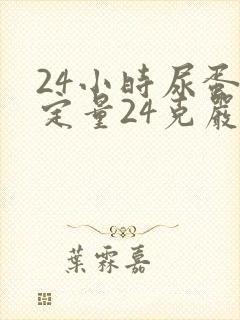 24小時尿蛋
定量24克嚴
葉霖嘉